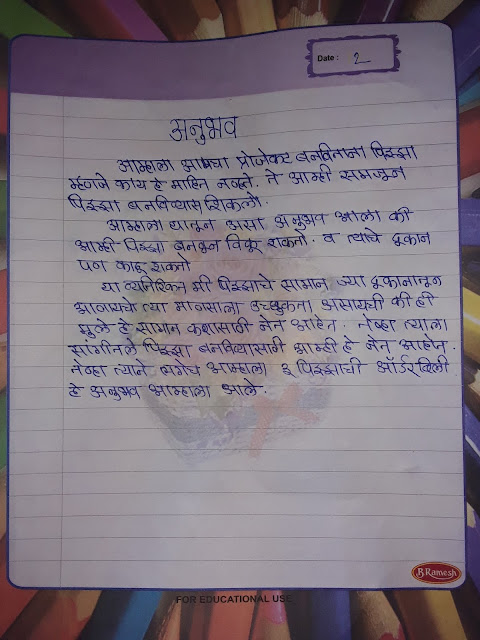 Date: 2
अनुभव
आम्हाला आमचा प्रोजेक्ट बनविताना पिझ्झा
म्हणजे काय हे माहित नव्हते. ते आम्ही समजून
पिझ्झा बनविण्यास शिकलो.
आम्हाला यातून असा अनुभव आला की
आम्ही पिझ्झा बनवून विकू शकतो. व त्याचे दुकान
पण काढू शकतो
या व्यतिरिक्त मी पिझ्झाचे सामान ज्या दुकानातून
आणायचे त्या माणसाला उत्सुकता असायची की ही
मुले हे सामान कशासाठी नेत आहेत. तेव्हा त्याला
सांगीतले पिझ्झा बनविण्यासाठी आम्ही हे नेत आहोत.
तेव्हा त्याने लगेच आम्हाला ३ पिझ्झाची ऑर्डर दिली
हे अनुभव आम्हाला आले.
BRamesh
FOR EDUCATIONAL USE